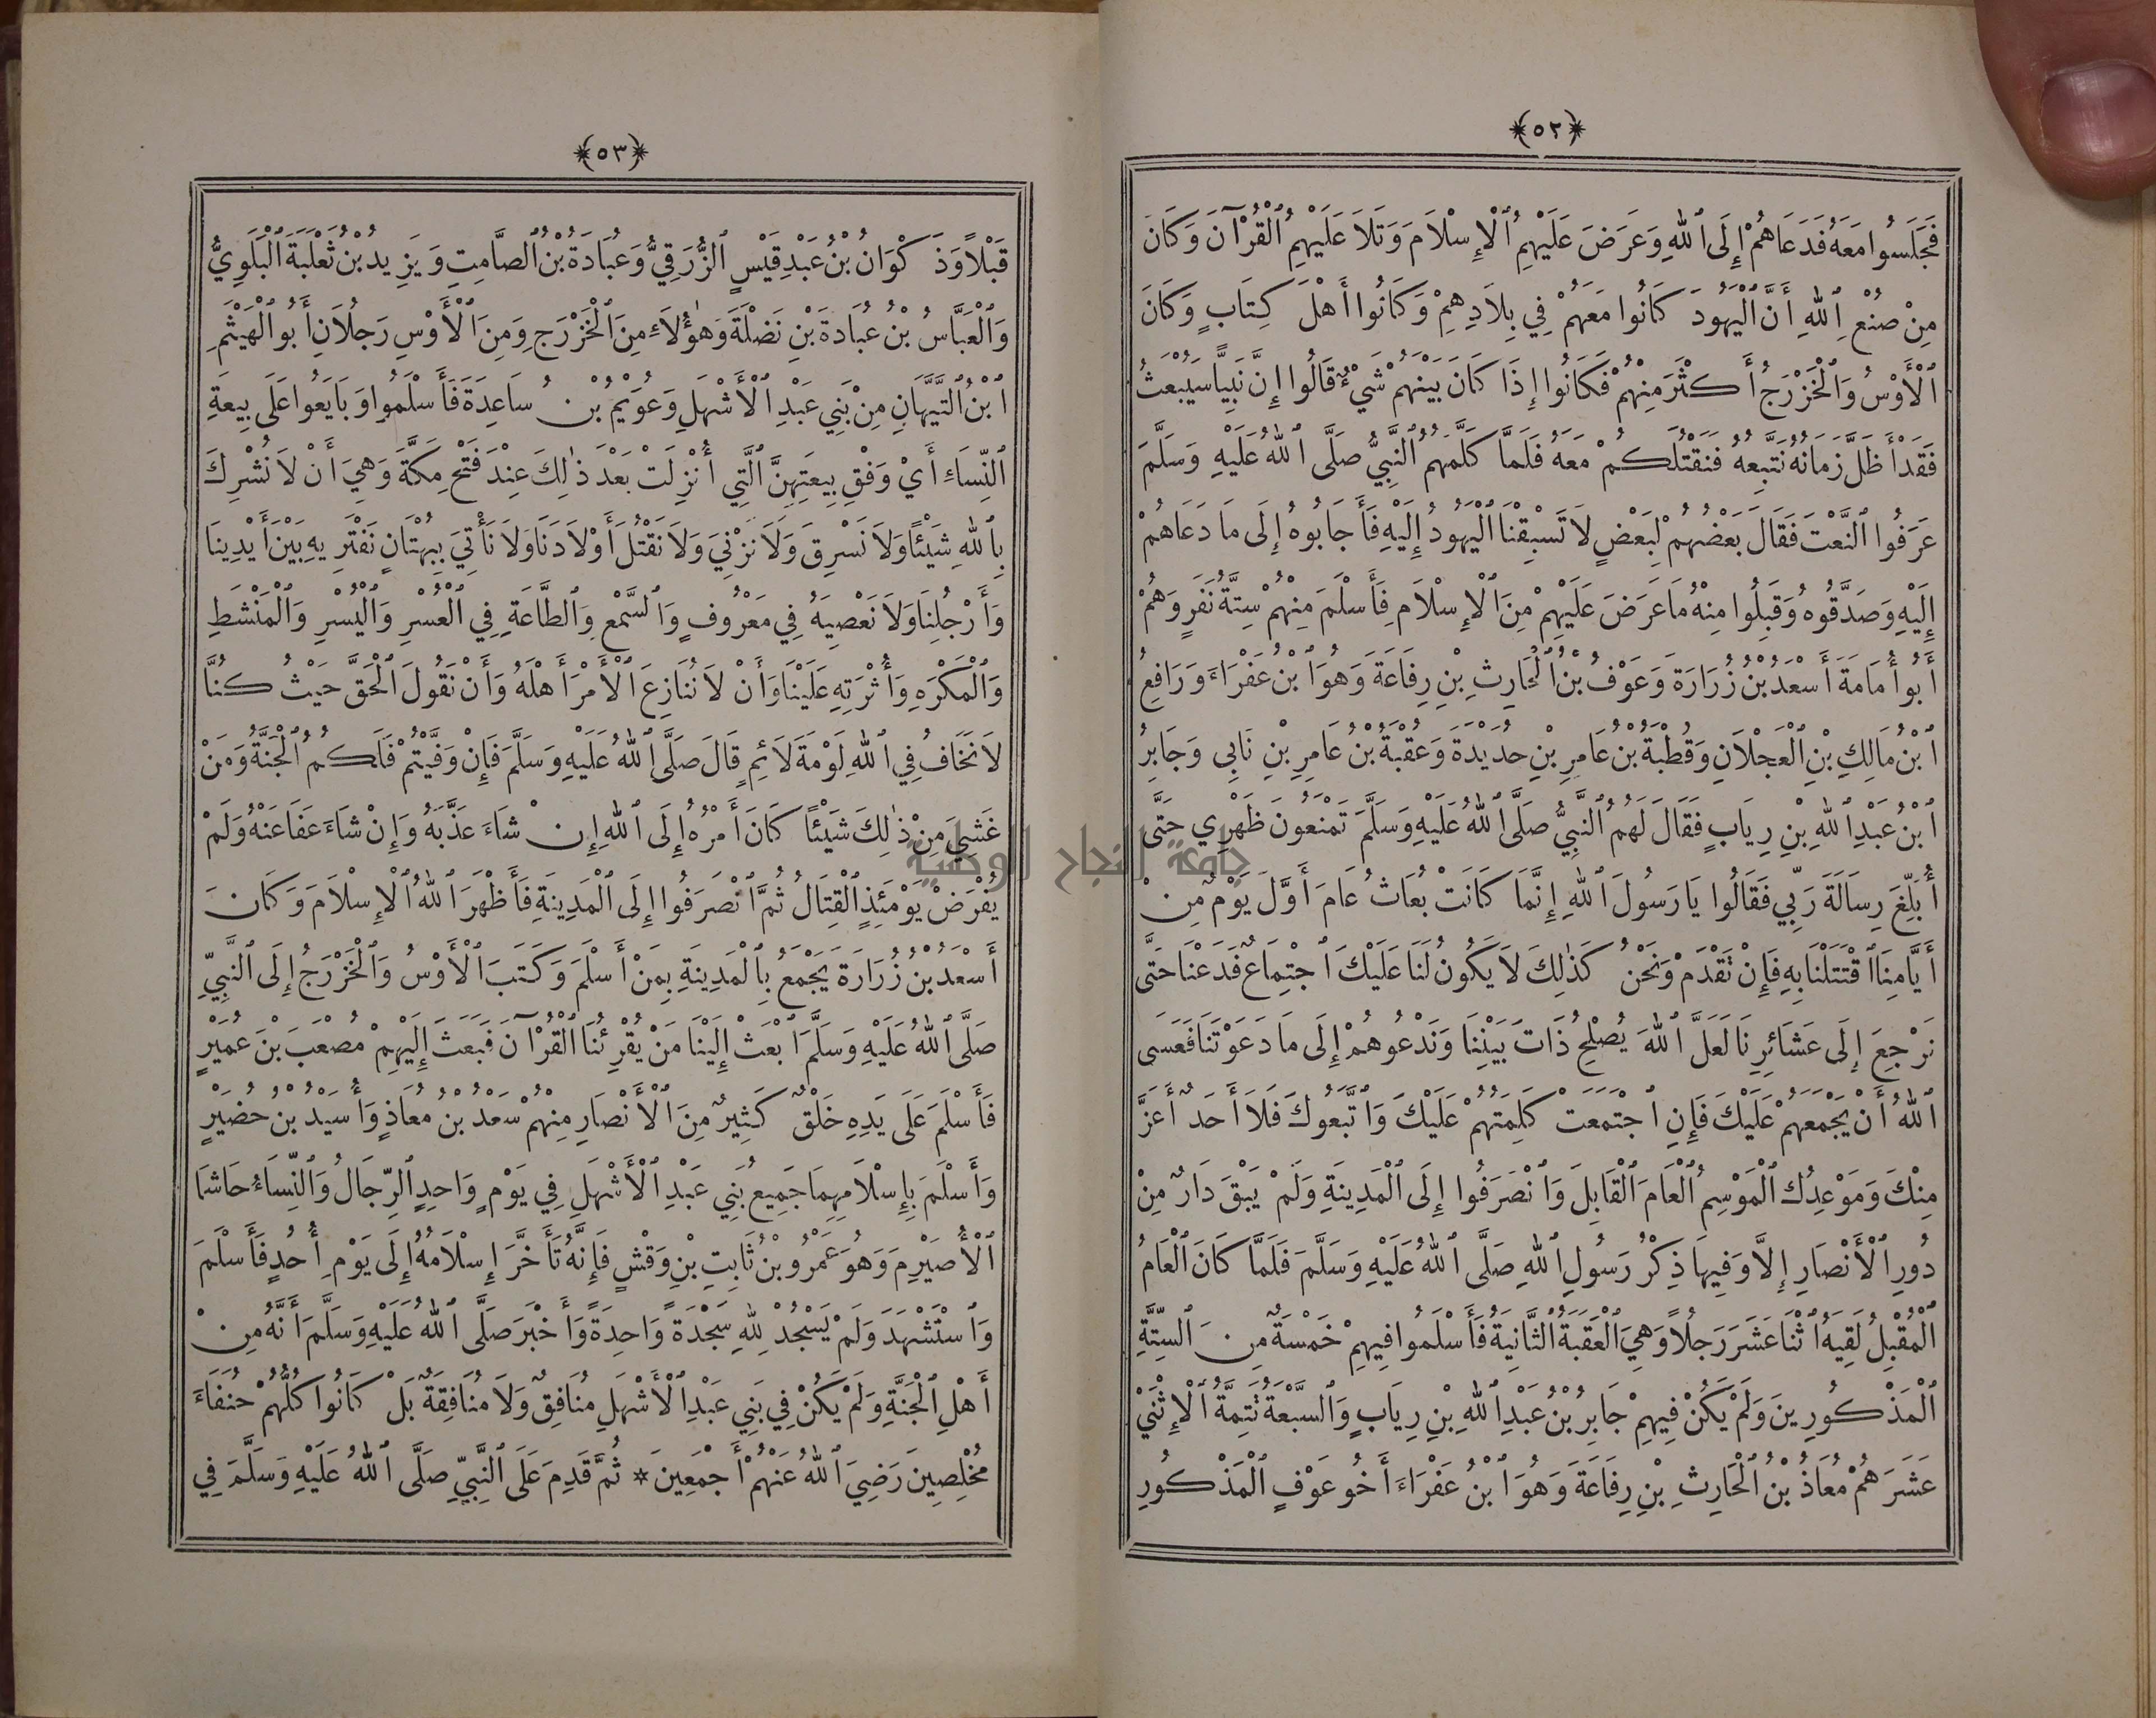 ﴿٥٢﴾
فَجَلَسُوا مَعَهُ فَدَعَاهُمْ إِلَى ٱللهِ وَعَرَضَ عَلَيْهِمِ ٱلْإِسْلَامَ وَتَلَا عَلَيْهِمِ ٱلْقُرْآنَ وَكَانَ
مِنْ صُنْعِ ٱللهِ أَنَّ ٱلْيَهُودَ كَانُوا مَعَهُمْ فِي بِلَادِهِمْ وَكَانُوا أَهْلَ كِتَابٍ وَكَانَ
ٱلْأَوْسُ وَٱلْخَزْرَجُ أَكْثَرَ مِنْهُمْ فَكَانُوا إِذَا كَانَ بَيْنَهُمْ شَيْءٌ قَالُوا إِنَّ نَبِيًّا سَيُبْعَثُ
فَقَدْ أَظَلَّ زَمَانُهُ نَتَّبِعُهُ فَنَقْتُلُكُمْ مَعَهُ فَلَمَّا كَلَّمَهُمُ ٱلنَّبِيُّ صَلَّى ٱللهُ عَلَيْهِ وَسَلَّمَ
عَرَفُوا ٱلنَّعْتَ فَقَالَ بَعْضُهُمْ لِبَعْضٍ لَا تَسْبِقْنَا ٱلْيَهُودُ إِلَيْهِ فَأَجَابُوهُ إِلَى مَا دَعَاهُمْ
إِلَيْهِ وَصَدَّقُوهُ وَقَبِلُوا مِنْهُ مَا عَرَضَ عَلَيْهِمْ مِنَ ٱلْإِسْلَامِ فَأَسْلَمَ مِنْهُمْ سِتَّةُ نَفَرٍ وَهُمْ
أَبُو أُمَامَةَ أَسْعَدُ بْنُ زُرَارَةَ وَعَوْفُ بْنُ ٱلْحَارِثِ بْنِ رِفَاعَةَ وَهُوَ ٱبْنُ عَفْرَاءَ وَرَافِعُ
ٱبْنُ مَالِكِ بْنِ ٱلْعَجْلَانِ وَقُطْبَةُ بْنُ عَامِرِ بْنِ حُدَيْدَةَ وَعُقْبَةُ بْنُ عَامِرِ بْنِ نَابِي وَجَابِرُ
ٱبْنُ عَبْدِ ٱللهِ بْنِ رِيَابٍ فَقَالَ لَهُمُ ٱلنَّبِيُّ صَلَّى ٱللهُ عَلَيْهِ وَسَلَّمَ تَمْنَعُونَ ظَهْرِي حَتَّى
أُبَلِّغَ رِسَالَةَ رَبِّي فَقَالُوا يَا رَسُولَ ٱللهِ إِنَّمَا كَانَتْ بُعَاثُ عَامَ أَوَّلَ يَوْمٌ مِنْ
أَيَّامِنَا ٱقْتَتَلْنَا بِهِ فَإِنْ نَقْدَمْ وَنَحْنُ كَذٰلِكَ لَا يَكُونُ لَنَا عَلَيْكَ ٱجْتِمَاعٌ فَدَعْنَا حَتَّى
نَرْجِعَ إِلَى عَشَائِرِنَا لَعَلَّ ٱللهَ يُصْلِحُ ذَاتَ بَيْنِنَا وَنَدْعُوهُمْ إِلَى مَا دَعَوْتَنَا فَعَسَى
ٱللهُ أَنْ يَجْمَعَهُمْ عَلَيْكَ فَإِنِ ٱجْتَمَعَتْ كَلِمَتُهُمْ عَلَيْكَ وَٱتَّبَعُوكَ فَلَا أَحَدٌ أَعَزَّ
مِنْكَ وَمَوْعِدُكَ ٱلْمَوْسِمُ ٱلْعَامَ ٱلْقَابِلَ وَٱنْصَرَفُوا إِلَى ٱلْمَدِينَةِ وَلَمْ يَبْقَ دَارٌ مِنْ
دُورِ ٱلْأَنْصَارِ إِلَّا وَفِيهَا ذِكْرُ رَسُولِ ٱللهِ صَلَّى ٱللهُ عَلَيْهِ وَسَلَّمَ فَلَمَّا كَانَ ٱلْعَامُ
ٱلْمُقْبِلُ لَقِيَهُ ٱثْنَا عَشَرَ رَجُلًا وَهِيَ ٱلْعَقَبَةُ ٱلثَّانِيَةُ فَأَسْلَمُوا فِيهِمْ خَمْسَةٌ مِنَ ٱلسِّتَّةِ
ٱلْمَذْكُورِينَ وَلَمْ يَكُنْ فِيهِمْ جَابِرُ بْنُ عَبْدِ ٱللهِ بْنِ رِيَابٍ وَٱلسَّبْعَةُ تَتِمَّةُ ٱلْإِثْنَيْ
عَشَرَ هُمْ مُعَاذُ بْنُ ٱلْحَارِثِ بْنِ رِفَاعَةَ وَهُوَ ٱبْنُ عَفْرَاءَ أَخُو عَوْفٍ ٱلْمَذْكُورِ
﴿٥٣﴾
قَبْلًا وَذَكْوَانُ بْنُ عَبْدِ قَيْسٍ ٱلزُّرَقِيُّ وَعُبَادَةُ بْنُ ٱلصَّامِتِ وَيَزِيدُ بْنُ ثَعْلَبَةَ ٱلْبَلَوِيُّ
وَٱلْعَبَّاسُ بْنُ عُبَادَةَ بْنِ نَضْلَةَ وَهٰؤُلَاءِ مِنَ ٱلْخَزْرَجِ وَمِنَ ٱلْأَوْسِ رَجُلَانِ أَبُو ٱلْهَيْثَمِ
ٱبْنُ ٱلتَّيِّهَانِ مِنْ بَنِي عَبْدِ ٱلْأَشْهَلِ وَعُوَيْمُ بْنُ سَاعِدَةَ فَأَسْلَمُوا وَبَايَعُوا عَلَى بِيعَةِ
ٱلنِّسَاءِ أَيْ وَفْقِ بِيعَتِهِنَّ ٱلَّتِي أُنْزِلَتْ بَعْدَ ذٰلِكَ عِنْدَ فَتْحِ مَكَّةَ وَهِيَ أَنْ لَا نُشْرِكَ
بِٱللهِ شَيْئًا وَلَا نَسْرِقَ وَلَا نَزْنِيَ وَلَا نَقْتُلَ أَوْلَادَنَا وَلَا نَأْتِيَ بِبُهْتَانٍ نَفْتَرِيهِ بَيْنَ أَيْدِينَا
وَأَرْجُلِنَا وَلَا نَعْصِيَهُ فِي مَعْرُوفٍ وَٱلسَّمْعِ وَٱلطَّاعَةِ فِي ٱلْعُسْرِ وَٱلْيُسْرِ وَٱلْمَنْشَطِ
وَٱلْمَكْرَهِ وَأَثْرَتِهِ عَلَيْنَا وَأَنْ لَا نُنَازِعَ ٱلْأَمْرَ أَهْلَهُ وَأَنْ نَقُولَ ٱلْحَقَّ حَيْثُ كُنَّا
لَا نَخَافُ فِي ٱللهِ لَوْمَةَ لَائِمٍ قَالَ صَلَّى ٱللهُ عَلَيْهِ وَسَلَّمَ فَإِنْ وَفَّيْتُمْ فَلَكُمُ ٱلْجَنَّةُ وَمَنْ
غَشِيَ مِنْ ذٰلِكَ شَيْئًا كَانَ أَمْرُهُ إِلَى ٱللهِ إِنْ شَاءَ عَذَّبَهُ وَإِنْ شَاءَ عَفَا عَنْهُ وَلَمْ
يُفْرَضْ يَوْمَئِذٍ ٱلْقِتَالُ ثُمَّ ٱنْصَرَفُوا إِلَى ٱلْمَدِينَةِ فَأَظْهَرَ ٱللهُ ٱلْإِسْلَامَ وَكَانَ
أَسْعَدُ بْنُ زُرَارَةَ يَجْمَعُ بِٱلْمَدِينَةِ بِمَنْ أَسْلَمَ وَكَتَبَ ٱلْأَوْسُ وَٱلْخَزْرَجُ إِلَى ٱلنَّبِيِّ
صَلَّى ٱللهُ عَلَيْهِ وَسَلَّمَ ٱبْعَثْ إِلَيْنَا مَنْ يُقْرِئُنَا ٱلْقُرْآنَ فَبَعَثَ إِلَيْهِمْ مُصْعَبَ بْنَ عُمَيْرٍ
فَأَسْلَمَ عَلَى يَدِهِ خَلْقٌ كَثِيرٌ مِنَ ٱلْأَنْصَارِ مِنْهُمْ سَعْدُ بْنُ مُعَاذٍ وَأُسَيْدُ بْنُ حُضَيْرٍ
وَأَسْلَمَ بِإِسْلَامِهِمَا جَمِيعُ بَنِي عَبْدِ ٱلْأَشْهَلِ فِي يَوْمٍ وَاحِدٍ ٱلرِّجَالُ وَٱلنِّسَاءُ حَاشَا
ٱلْأُصَيْرِمَ وَهُوَ عَمْرُو بْنُ ثَابِتِ بْنِ وَقْشٍ فَإِنَّهُ تَأَخَّرَ إِسْلَامُهُ إِلَى يَوْمِ أُحُدٍ فَأَسْلَمَ
وَٱسْتُشْهِدَ وَلَمْ يَسْجُدْ لِلهِ سَجْدَةً وَاحِدَةً وَأَخْبَرَ صَلَّى ٱللهُ عَلَيْهِ وَسَلَّمَ أَنَّهُ مِنْ
أَهْلِ ٱلْجَنَّةِ وَلَمْ يَكُنْ فِي بَنِي عَبْدِ ٱلْأَشْهَلِ مُنَافِقٌ وَلَا مُنَافِقَةٌ بَلْ كَانُوا كُلُّهُمْ حُنَفَاءَ
مُخْلِصِينَ رَضِيَ ٱللهُ عَنْهُمْ أَجْمَعِينَ * ثُمَّ قَدِمَ عَلَى ٱلنَّبِيِّ صَلَّى ٱللهُ عَلَيْهِ وَسَلَّمَ فِي
جامعة النجاح الوطنية